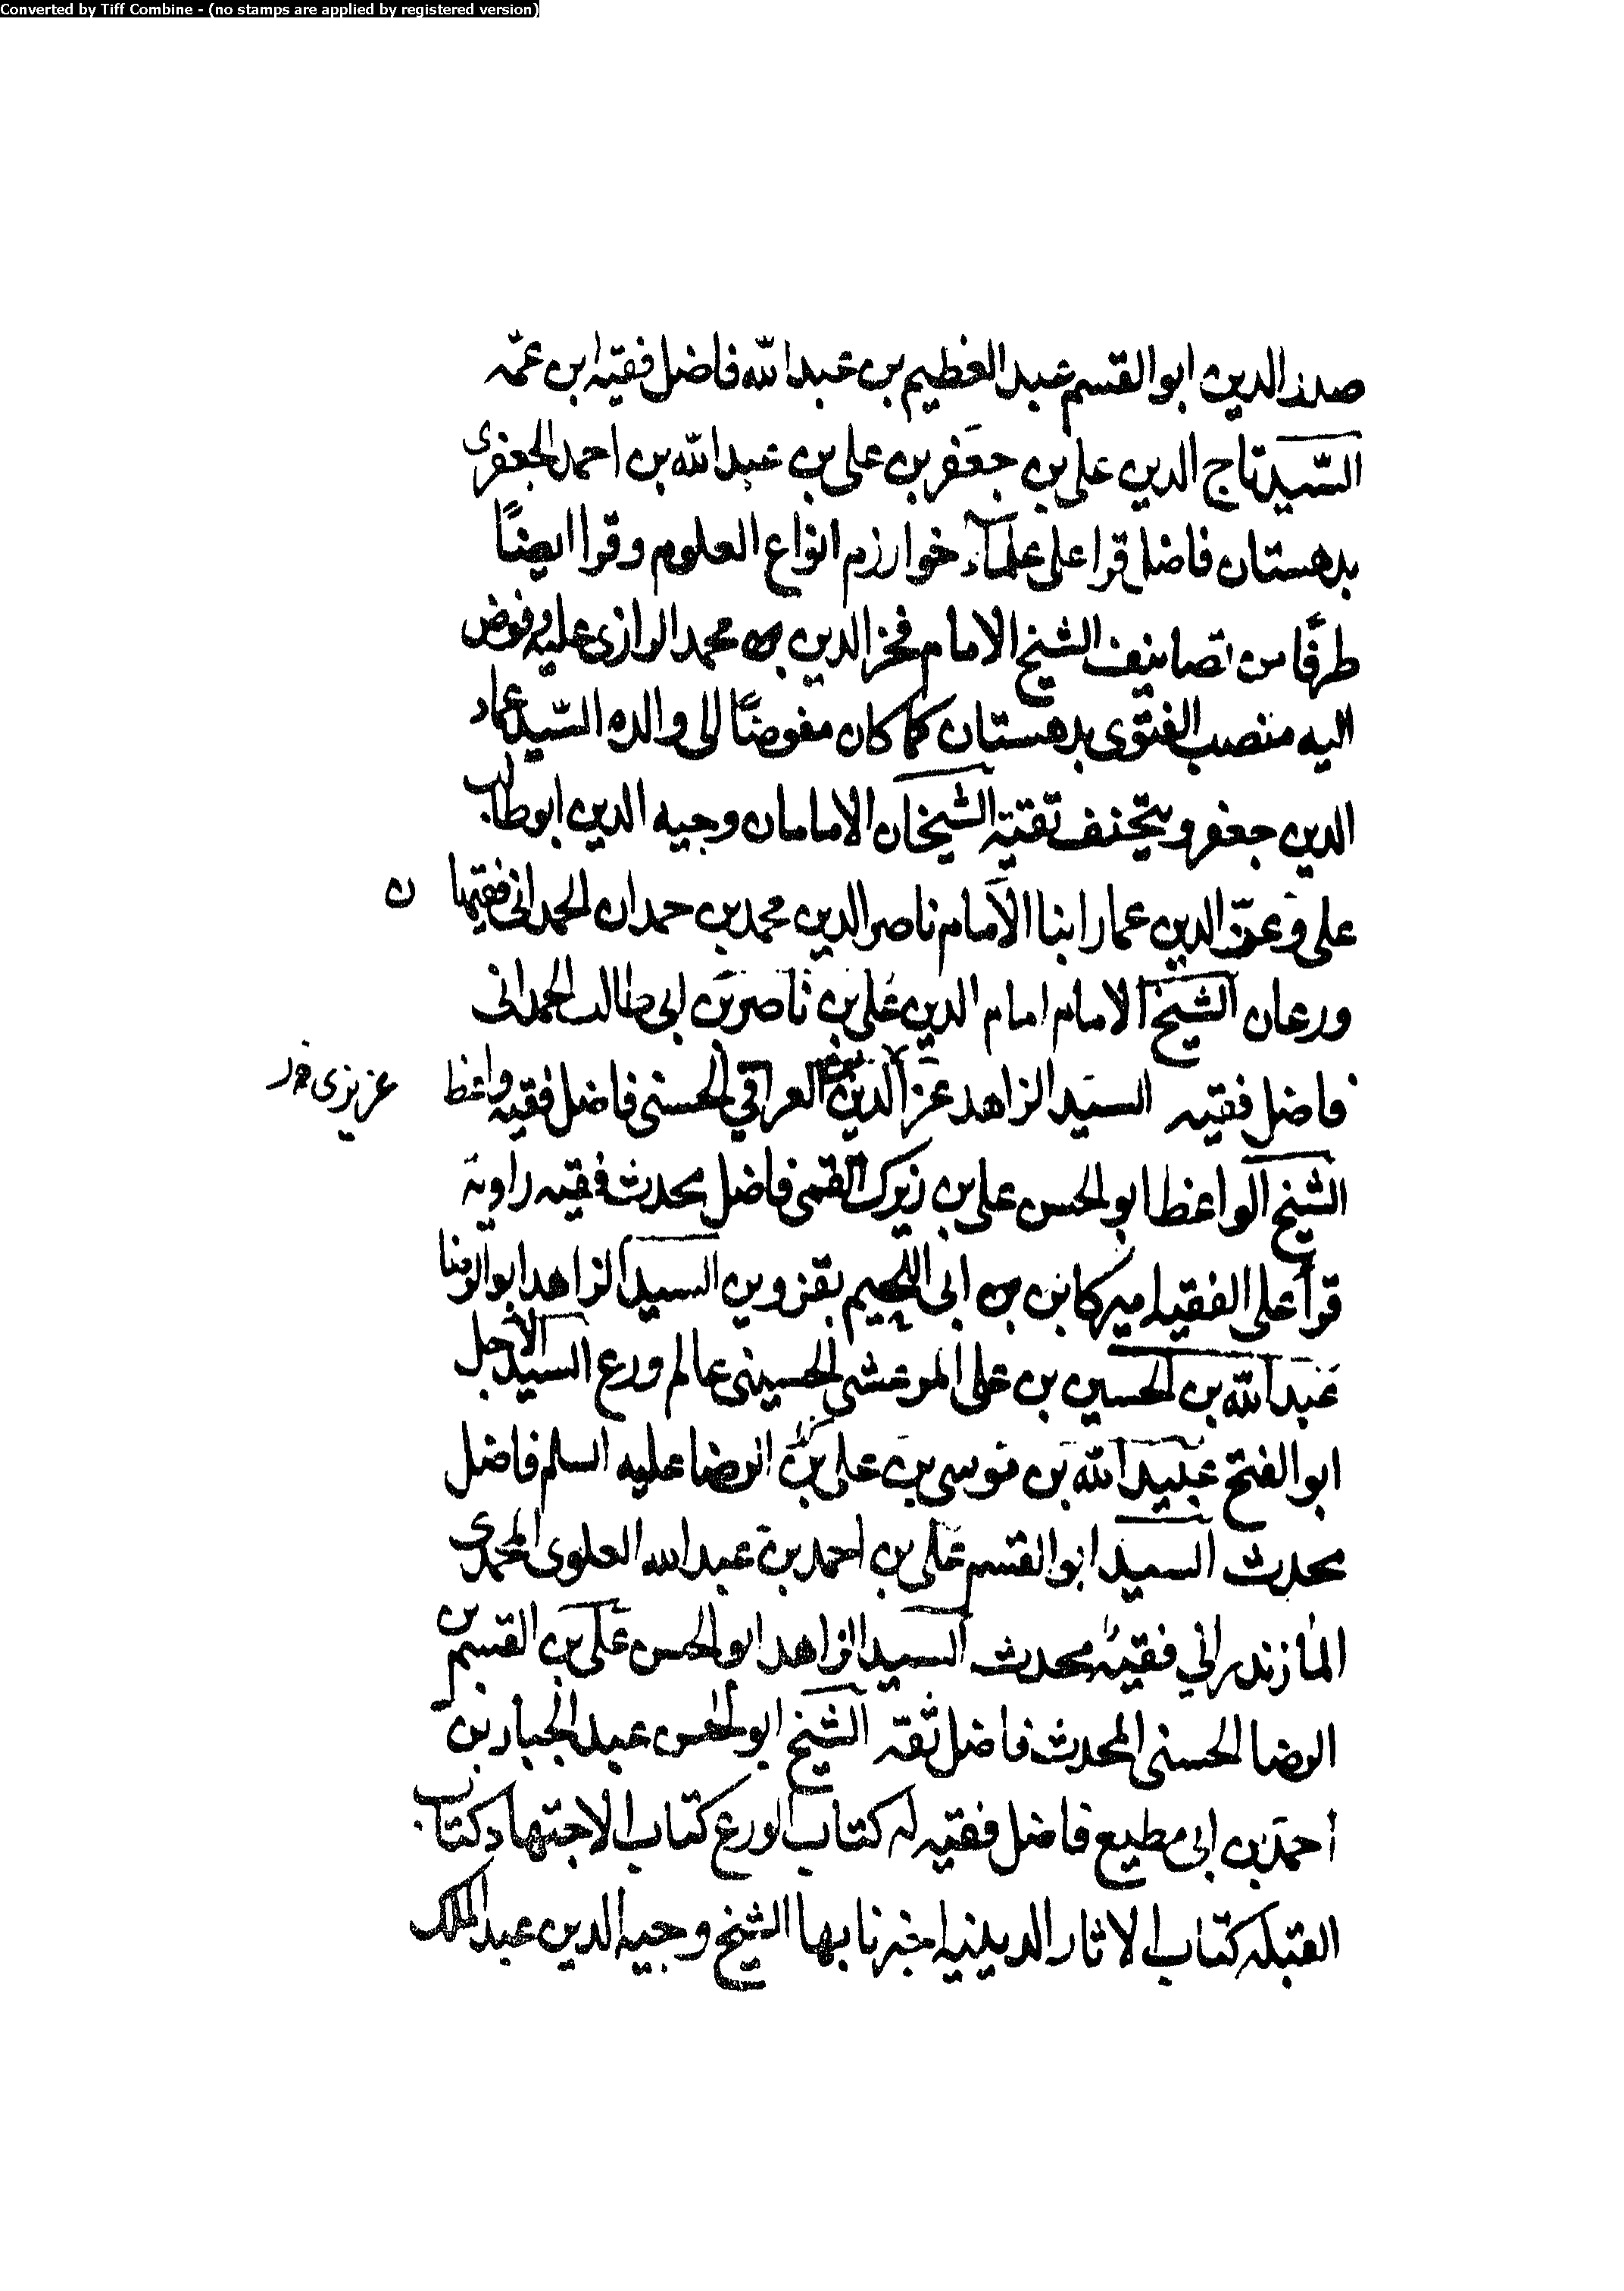 Converted by Tiff Combine - (no stamps are applied by registered version)
صدر الدين ابو القسم عبد العظيم بن عبد الله فاضل فقيه ابن عمه
السيد تاج الدين على بن جعفر بن على بن عبد الله بن احمد الجعفرى
بدهستان فاضل قرا على علماء خوارزم انواع العلوم وقرا ايضًا
طرفًا من تصانيف الشيخ الامام فخر الدين بن محمد الرازى عليه وفوض
اليه منصب الفتوى بدهستان كما كان مفوضًا الى والده السيد عماد
الدين جعفر ويتحنف تقية الشيخان الامامان وجيه الدين ابو طالب
على وعز الدين عمار ابنا الامام ناصر الدين محمد بن حمدان الحمدانى فقيها ن
ورعان الشيخ الامام امام الدين على بن ناصر بن ابى طالب الحمدانى
فاضل فقيه السيد الزاهد عز الدين العراقي الحسنى فاضل فقيه واعظ
الشيخ الواعظ ابو الحسن على بن زيرك القمى فاضل محدث فقيه راوية
قرأ على الفقيه اميركا بن ابى اللجيم بقزوين السيد الزاهد ابو الرضا
عبد الله بن الحسين بن على المرعشى الحسينى عالم ورع السيد الاجل
ابو الفتح عبيد الله بن موسى بن على بن الرضا عليه السلم فاضل
محدث السيد ابو القسم على بن احمد بن عبد الله العلوى المحمدى
المازندراني فقيه محدث السيد الزاهد ابو الحسن على بن القسم بن
الرضا الحسنى المحدث فاضل ثقة الشيخ ابو الحسن عبد الجبار بن
احمد بن ابى مطيع فاضل فقيه له كتاب الورع كتاب الاجتهاد كتاب
القبله كتاب الاثار الدينيه اخبرنا بها الشيخ وجيه الدين عبد الملك